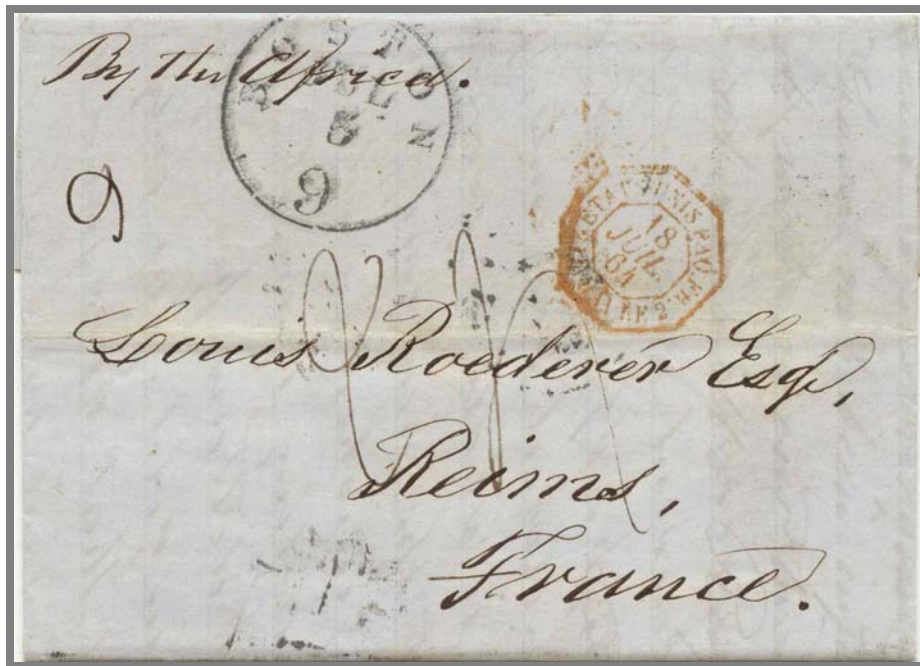 By the Africa.
BOSTON
JUL
3
9
9
ETATS-UNIS PAQ. FR.
18
JUIL.
61
2
Louis Roederer Esq,
Reims,
France.